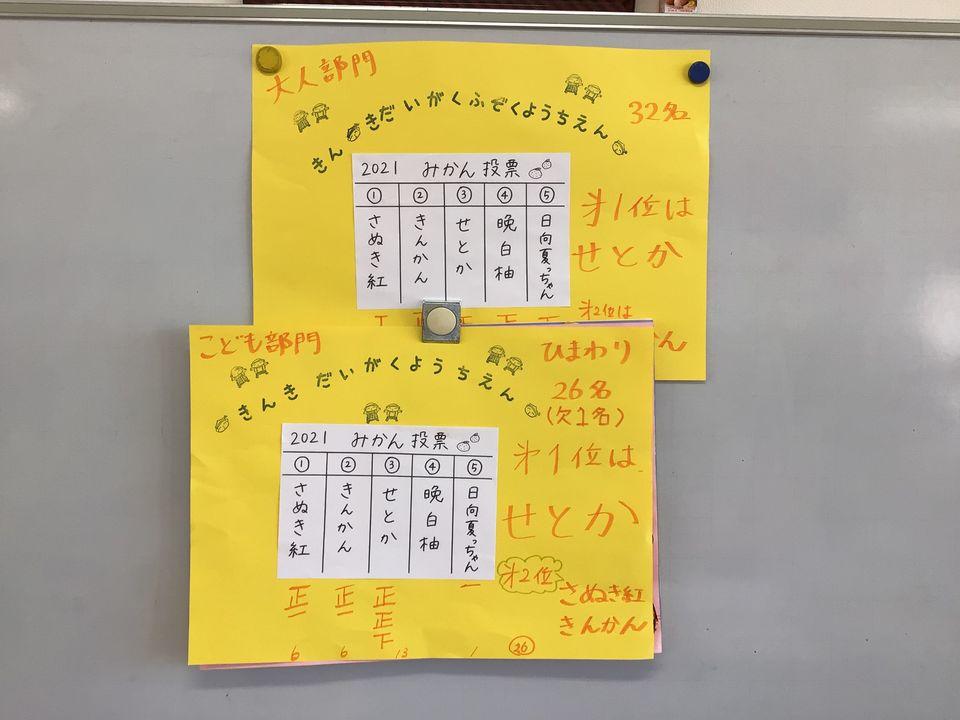 大人部門
きんきだいがくふぞくようちえん
32名
2021 みかん投票
① ② ③ ④ ⑤
さぬき紅
きんかん
せとか
晩白柚
日向夏っちゃん
㐧1位は
せとか
㐧2位は
こども部門
きんきだいがくようちえん
ひまわり
26名
(欠1名)
2021 みかん投票
① ② ③ ④ ⑤
さぬき紅
きんかん
せとか
晩白柚
日向夏っちゃん
㐧1位は
せとか
㐧2位
さぬき紅
きんかん
正一 正一 正正下 一
6 6 13 1 26